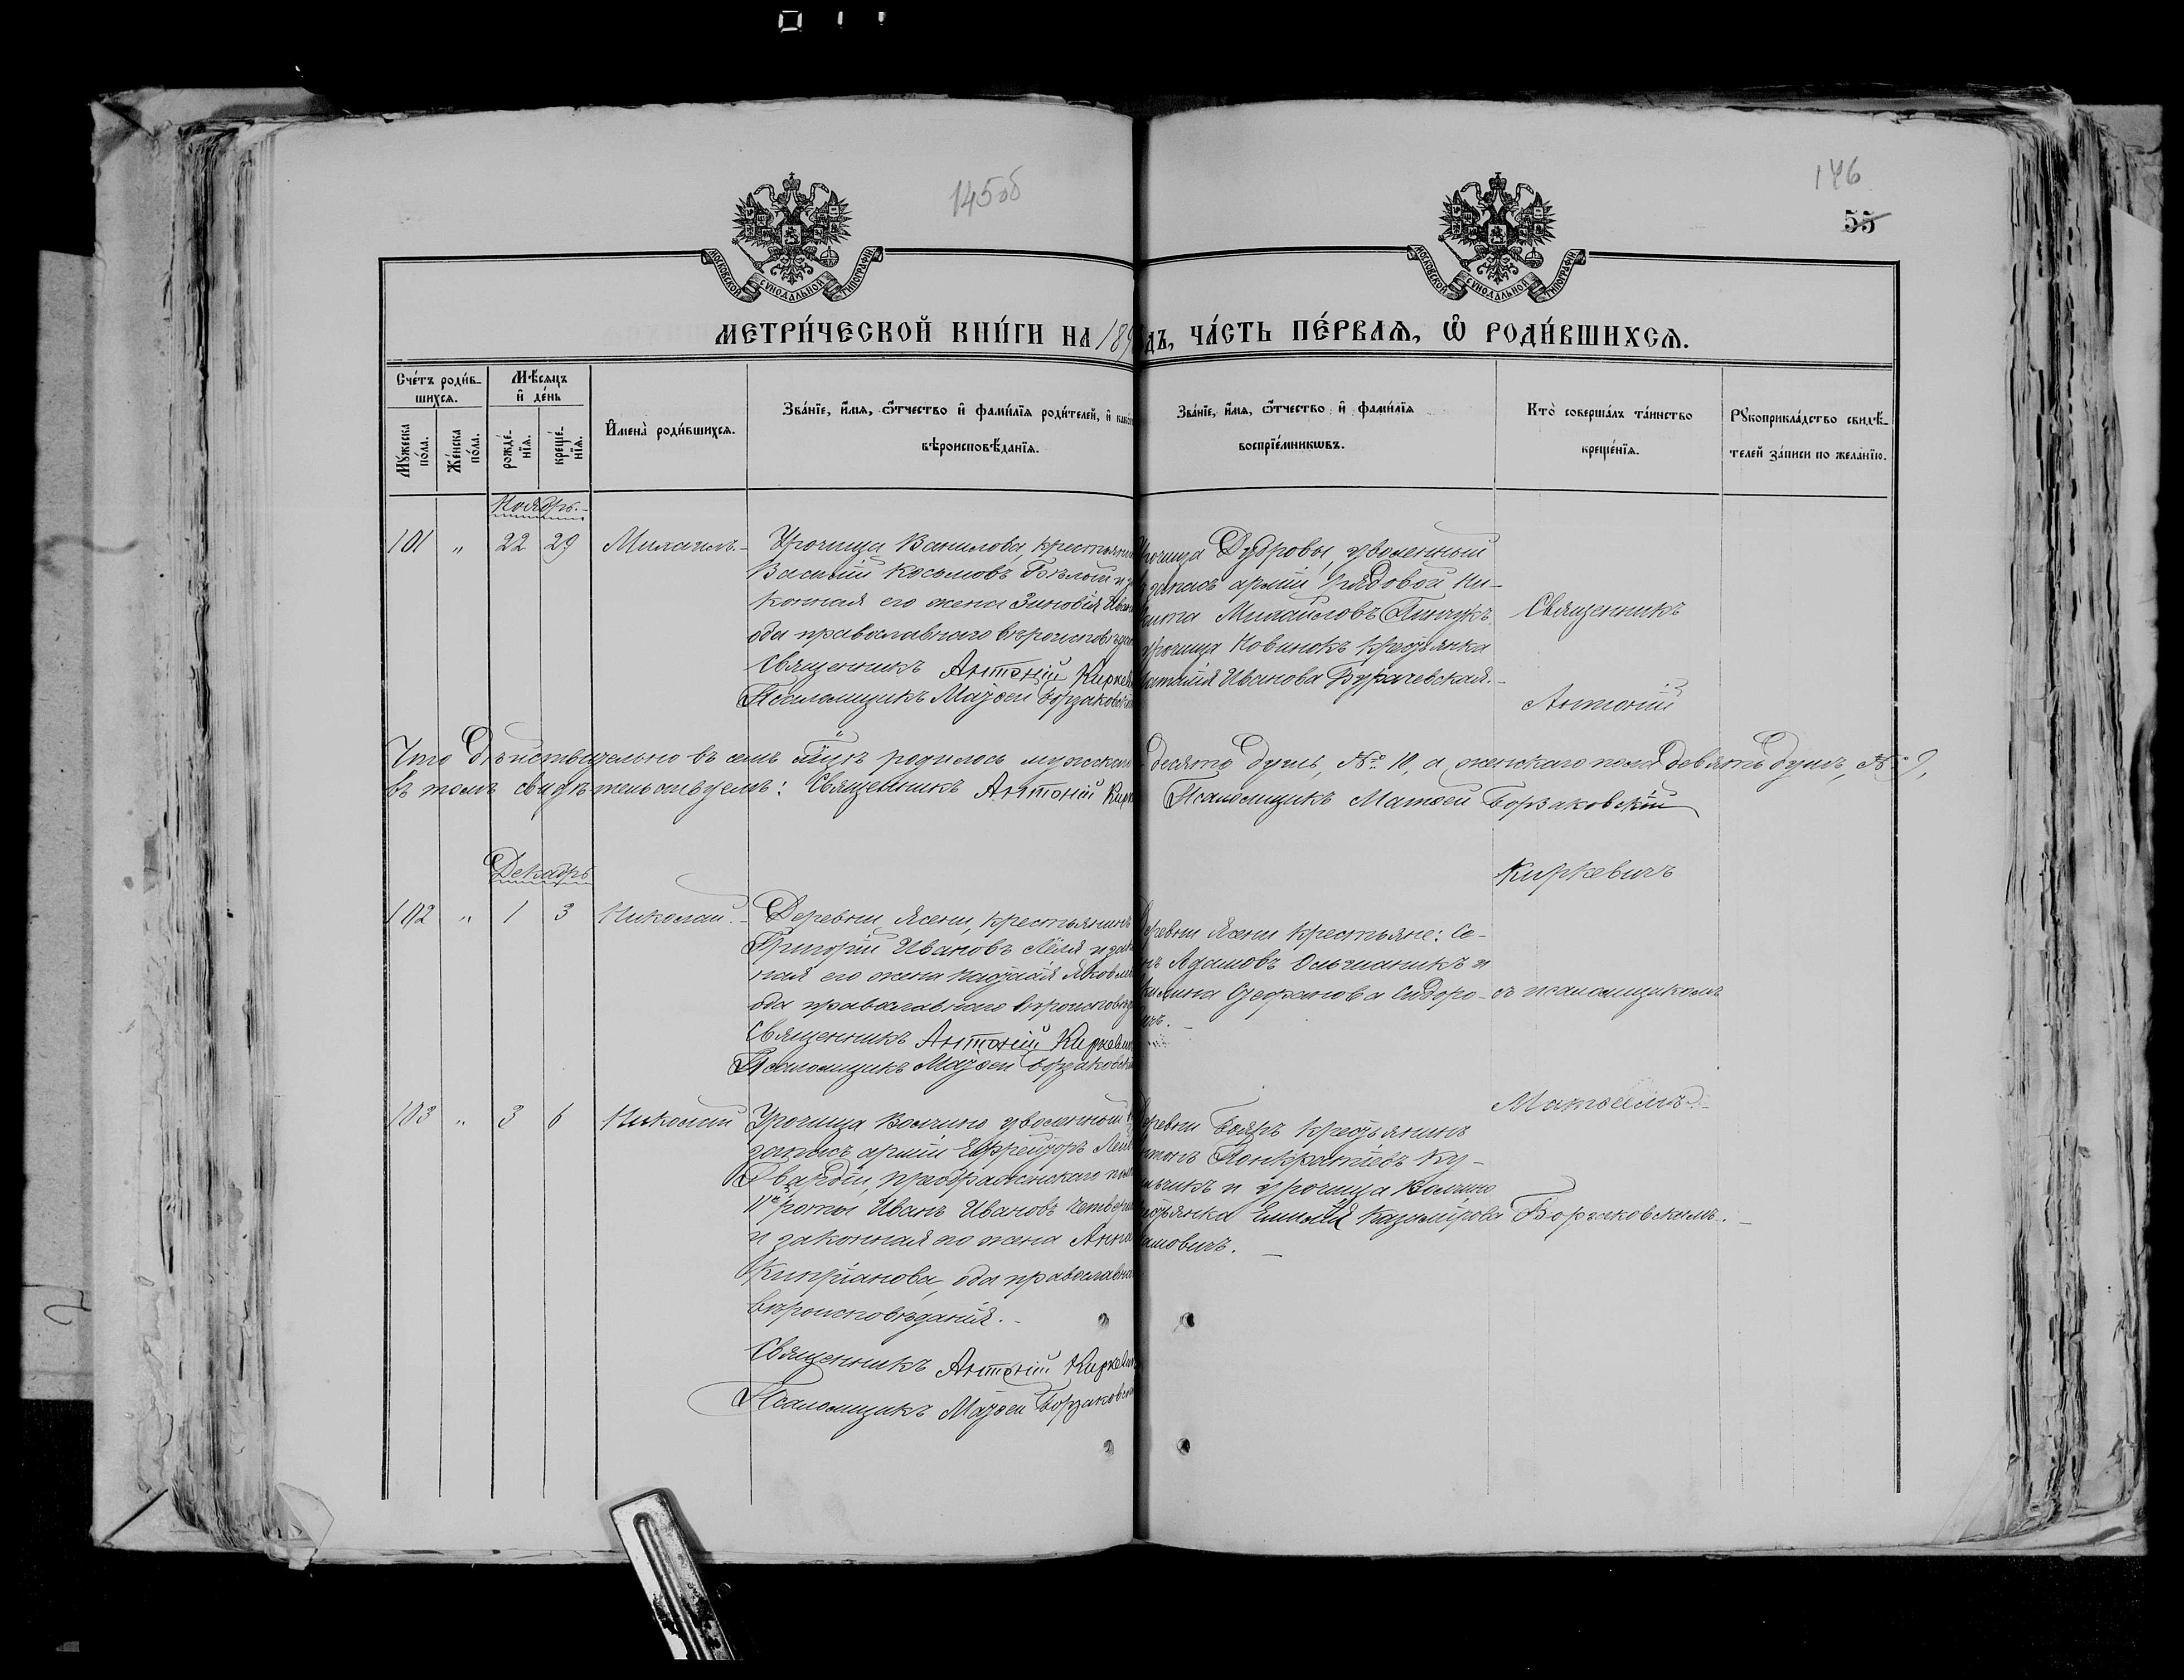 145об
146
55
МОСКОВСКОЙ СѴНОДАЛЬНОЙ ТИПОГРАФІИ
МОСКОВСКОЙ СѴНОДАЛЬНОЙ ТИПОГРАФІИ
МЕТРИ́ЧЕСКОЙ КНИ́ГИ НА 189
ДЪ, ЧА́СТЬ ПЕ́РВАѦ, Ѡ҆ РОДИ́ВШИХСѦ.
Сче́тъ роди́в-
шихсѧ.
Мѣ́сѧцъ
и҆ де́нь
Мꙋ́жеска
по́ла.
Же́нска
по́ла.
рожде́-
нїѧ.
креще́-
нїѧ.
И҆мена̀ роди́вшихсѧ.
Зва́нїе, и҆́мѧ, ѻ҆́тчество и҆ фами́лїѧ роди́телей, и҆
вѣроисповѣ́данїѧ.
Зва́нїе, и҆́мѧ, ѻ҆́тчество и҆ фами́лїѧ
воспрїе́мникѡвъ.
Кто̀ соверша́лъ та́инство
креще́нїѧ.
Рꙋкоприкла́дство свидѣ́-
телей за́писи по жела́нїю.
Ноябрь.
101 " 22 29 Михаилъ.
Урочища Ванилова, крестьянин
Василій Косьмовъ Бѣлый и за
конная его жена Зиновія Иван
оба православнаго вѣроисповѣдан
Священникъ Антоній Киркев
Псаломщикъ Матѳей Борзаковскі
рочища Дубровы, уволенный
запасъ арміи рядовой Ни-
кита Михайловъ Пинчукъ
урочища Новинокъ крестьянка
Наталія Иванова Бурачевская.
Священникъ
Антоній
Киркевичъ
съ псаломщикомъ
Матѳеемъ
Борзаковскимъ.
Что дѣйствительно въ семъ м-цѣ родилось мужскаго
десять душъ, № 10, а женскаго пола девять душъ, № 9,
въ томъ свидѣтельствуемъ: Священникъ Антоній Кирк
Псаломщикъ Матѳей Борзаковскій
Декабрь
102 " 1 3 Николай.
Деревни Ясени, крестьянинъ
Григорій Ивановъ Лёля и зак
ная его жена Наталія Яковле
оба православнаго вѣроисповѣд
Священникъ Антоній Киркевич
Псаломщикъ Матѳей Борзаковскі
ревни Ясени крестьяне: Се-
нъ Адамовъ Ольшаникъ и
Стефанова Сидоро-
ичъ.
103 " 3 6 Николай
Урочища Волчино уволенный
запасъ арміи Ефрейторъ Лейб
Гвардіи, преображенскаго полк
11й роты Иванъ Ивановъ Четвери
и законная его жена Анна
Кипріанова, оба православна
вѣроисповѣданія.
Священникъ Антоній Киркевич
Псаломщикъ Матѳей Борзаковскі
ревни Бояръ крестьянинъ
нтонъ Понкратіевъ Ку-
льчикъ и урочища Волчино
естьянка Емилія Казимірова
амовичъ.